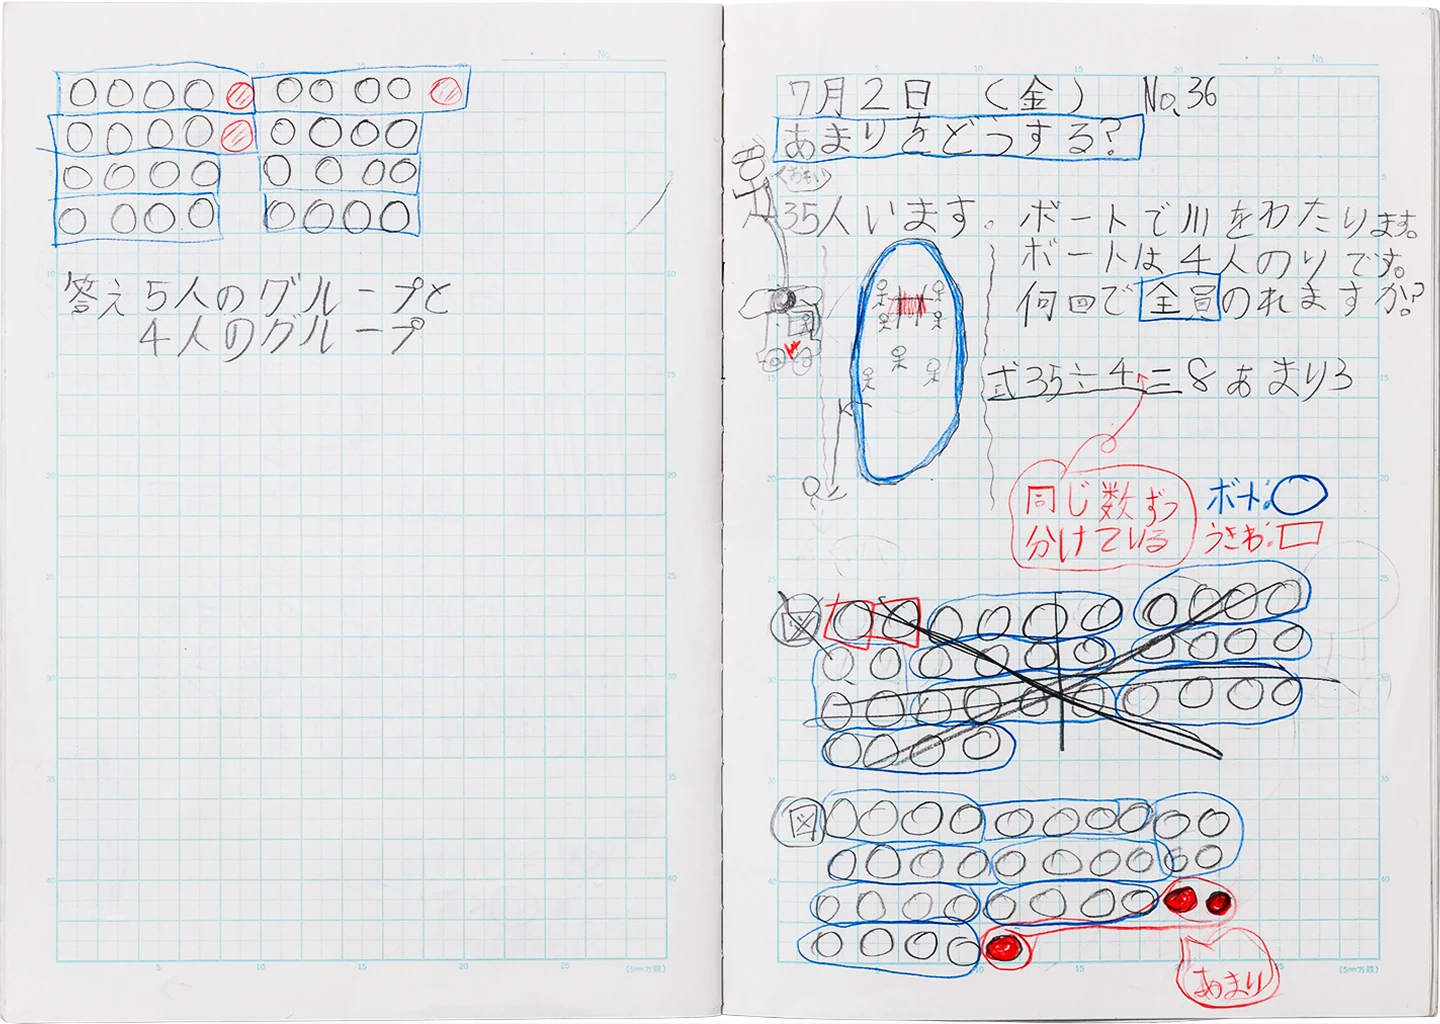 答え 5人のグループと
4人のグループ
No.
7月2日 (金) No.36
あまりをどうする?
35人います。ボートで川をわたります。
ボートは4人のりです。
何回で全員のれますか?
式 35÷4=8あまり3
同じ数ずつ
分けている
ボート:
うきわ:
図
図
あまり
(5mm方眼)
(5mm方眼)